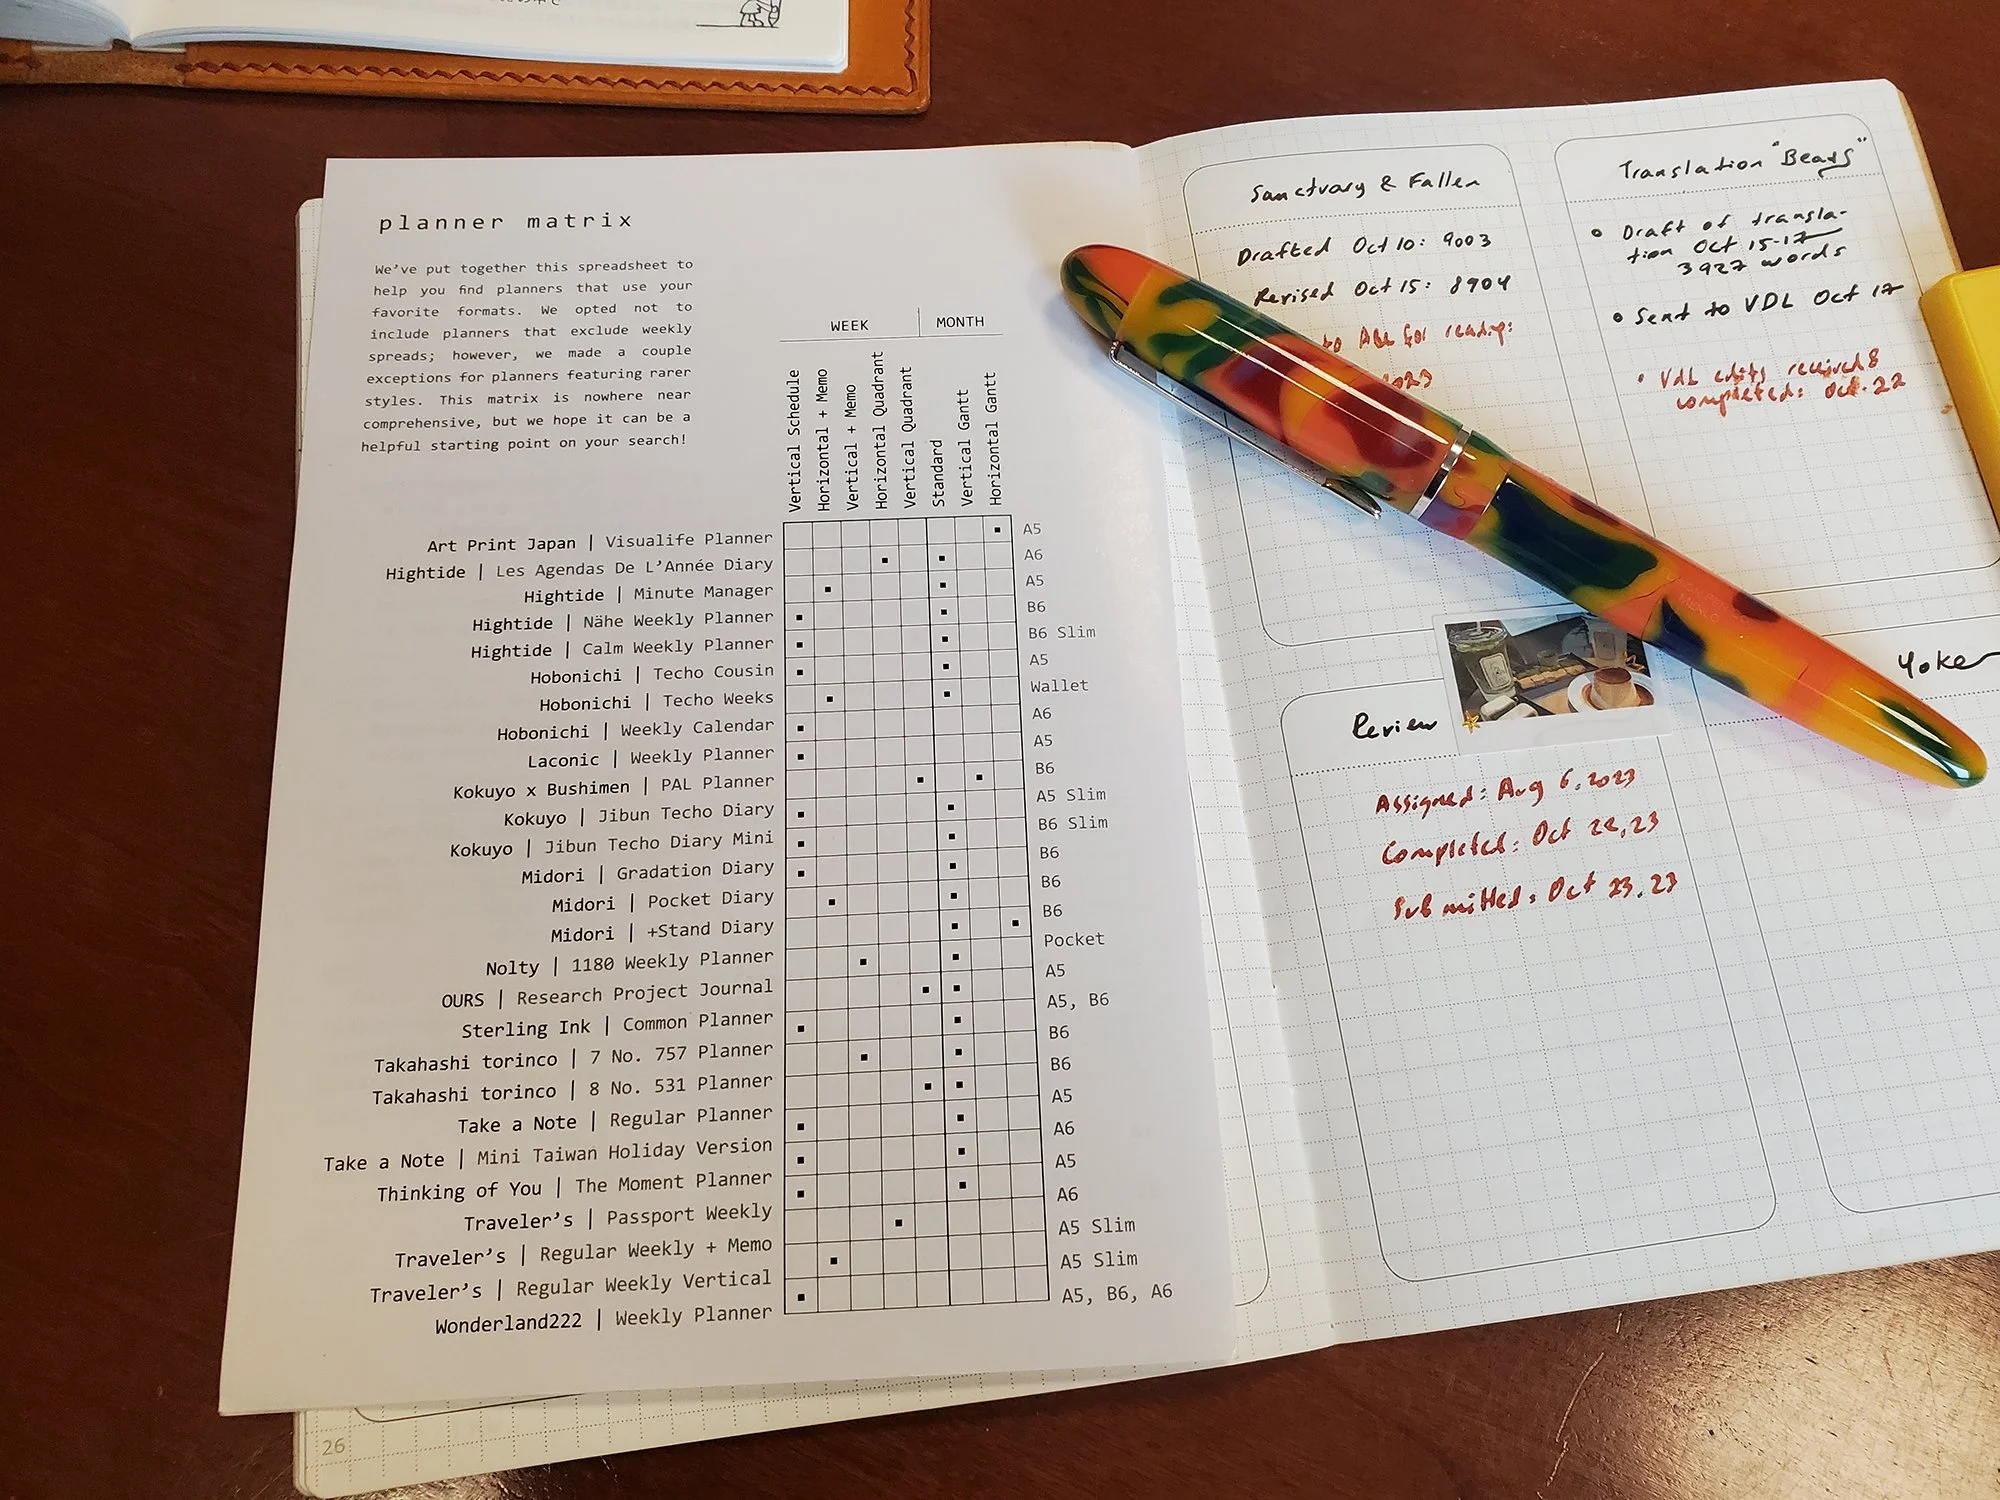 planner matrix
We've put together this spreadsheet to
help you find planners that use your
favorite formats. We opted not to
include planners that exclude weekly
spreads; however, we made a couple
exceptions for planners featuring rarer
styles. This matrix is nowhere near
comprehensive, but we hope it can be a
helpful starting point on your search!
WEEK MONTH
Vertical Schedule
Horizontal + Memo
Vertical + Memo
Horizontal Quadrant
Vertical Quadrant
Standard
Vertical Gantt
Horizontal Gantt
Art Print Japan | Visualife Planner A5
Hightide | Les Agendas De L'Année Diary A6
Hightide | Minute Manager A5
Hightide | Nähe Weekly Planner B6
Hightide | Calm Weekly Planner B6 Slim
Hobonichi | Techo Cousin A5
Hobonichi | Techo Weeks Wallet
Hobonichi | Weekly Calendar A6
Laconic | Weekly Planner A5
Kokuyo x Bushimen | PAL Planner B6
Kokuyo | Jibun Techo Diary A5 Slim
Kokuyo | Jibun Techo Diary Mini B6 Slim
Midori | Gradation Diary B6
Midori | Pocket Diary B6
Midori | +Stand Diary B6
Nolty | 1180 Weekly Planner Pocket
OURS | Research Project Journal A5
Sterling Ink | Common Planner A5, B6
Takahashi torinco | 7 No. 757 Planner B6
Takahashi torinco | 8 No. 531 Planner B6
Take a Note | Regular Planner A5
Take a Note | Mini Taiwan Holiday Version A6
Thinking of You | The Moment Planner A5
Traveler's | Passport Weekly A6
Traveler's | Regular Weekly + Memo A5 Slim
Traveler's | Regular Weekly Vertical A5 Slim
Wonderland222 | Weekly Planner A5, B6, A6
26
Sanctuary & Fallen
Drafted Oct 10: 9003
Revised Oct 15: 8904
to for reading:
2023
Translation "Bears"
• Draft of transla-
tion Oct 15-17
3927 words
• Sent to VDL Oct 17
• VDL edits received &
completed: Oct. 22
Review
Assigned: Aug 6, 2023
Completed: Oct 22, 23
Submitted: Oct 23, 23
Yoke